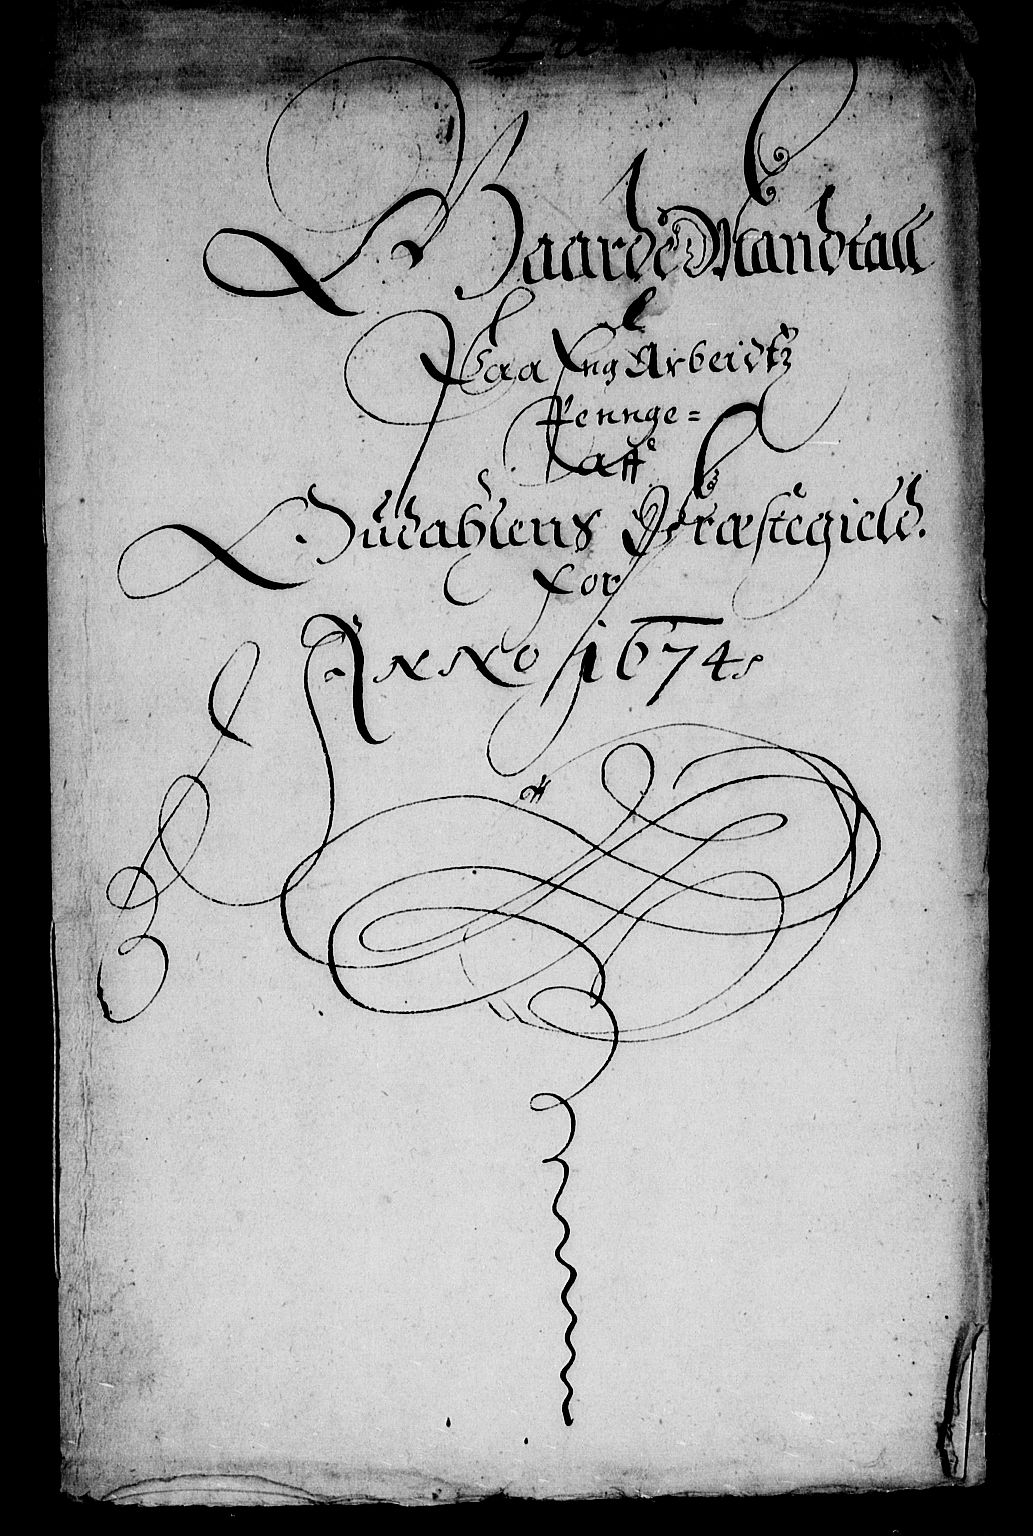 Gaarde Mandtall
Paa Eng Arbeidtz
Pennge=
Aff
Gudahlens Præstegield.
For
ANNO 1674